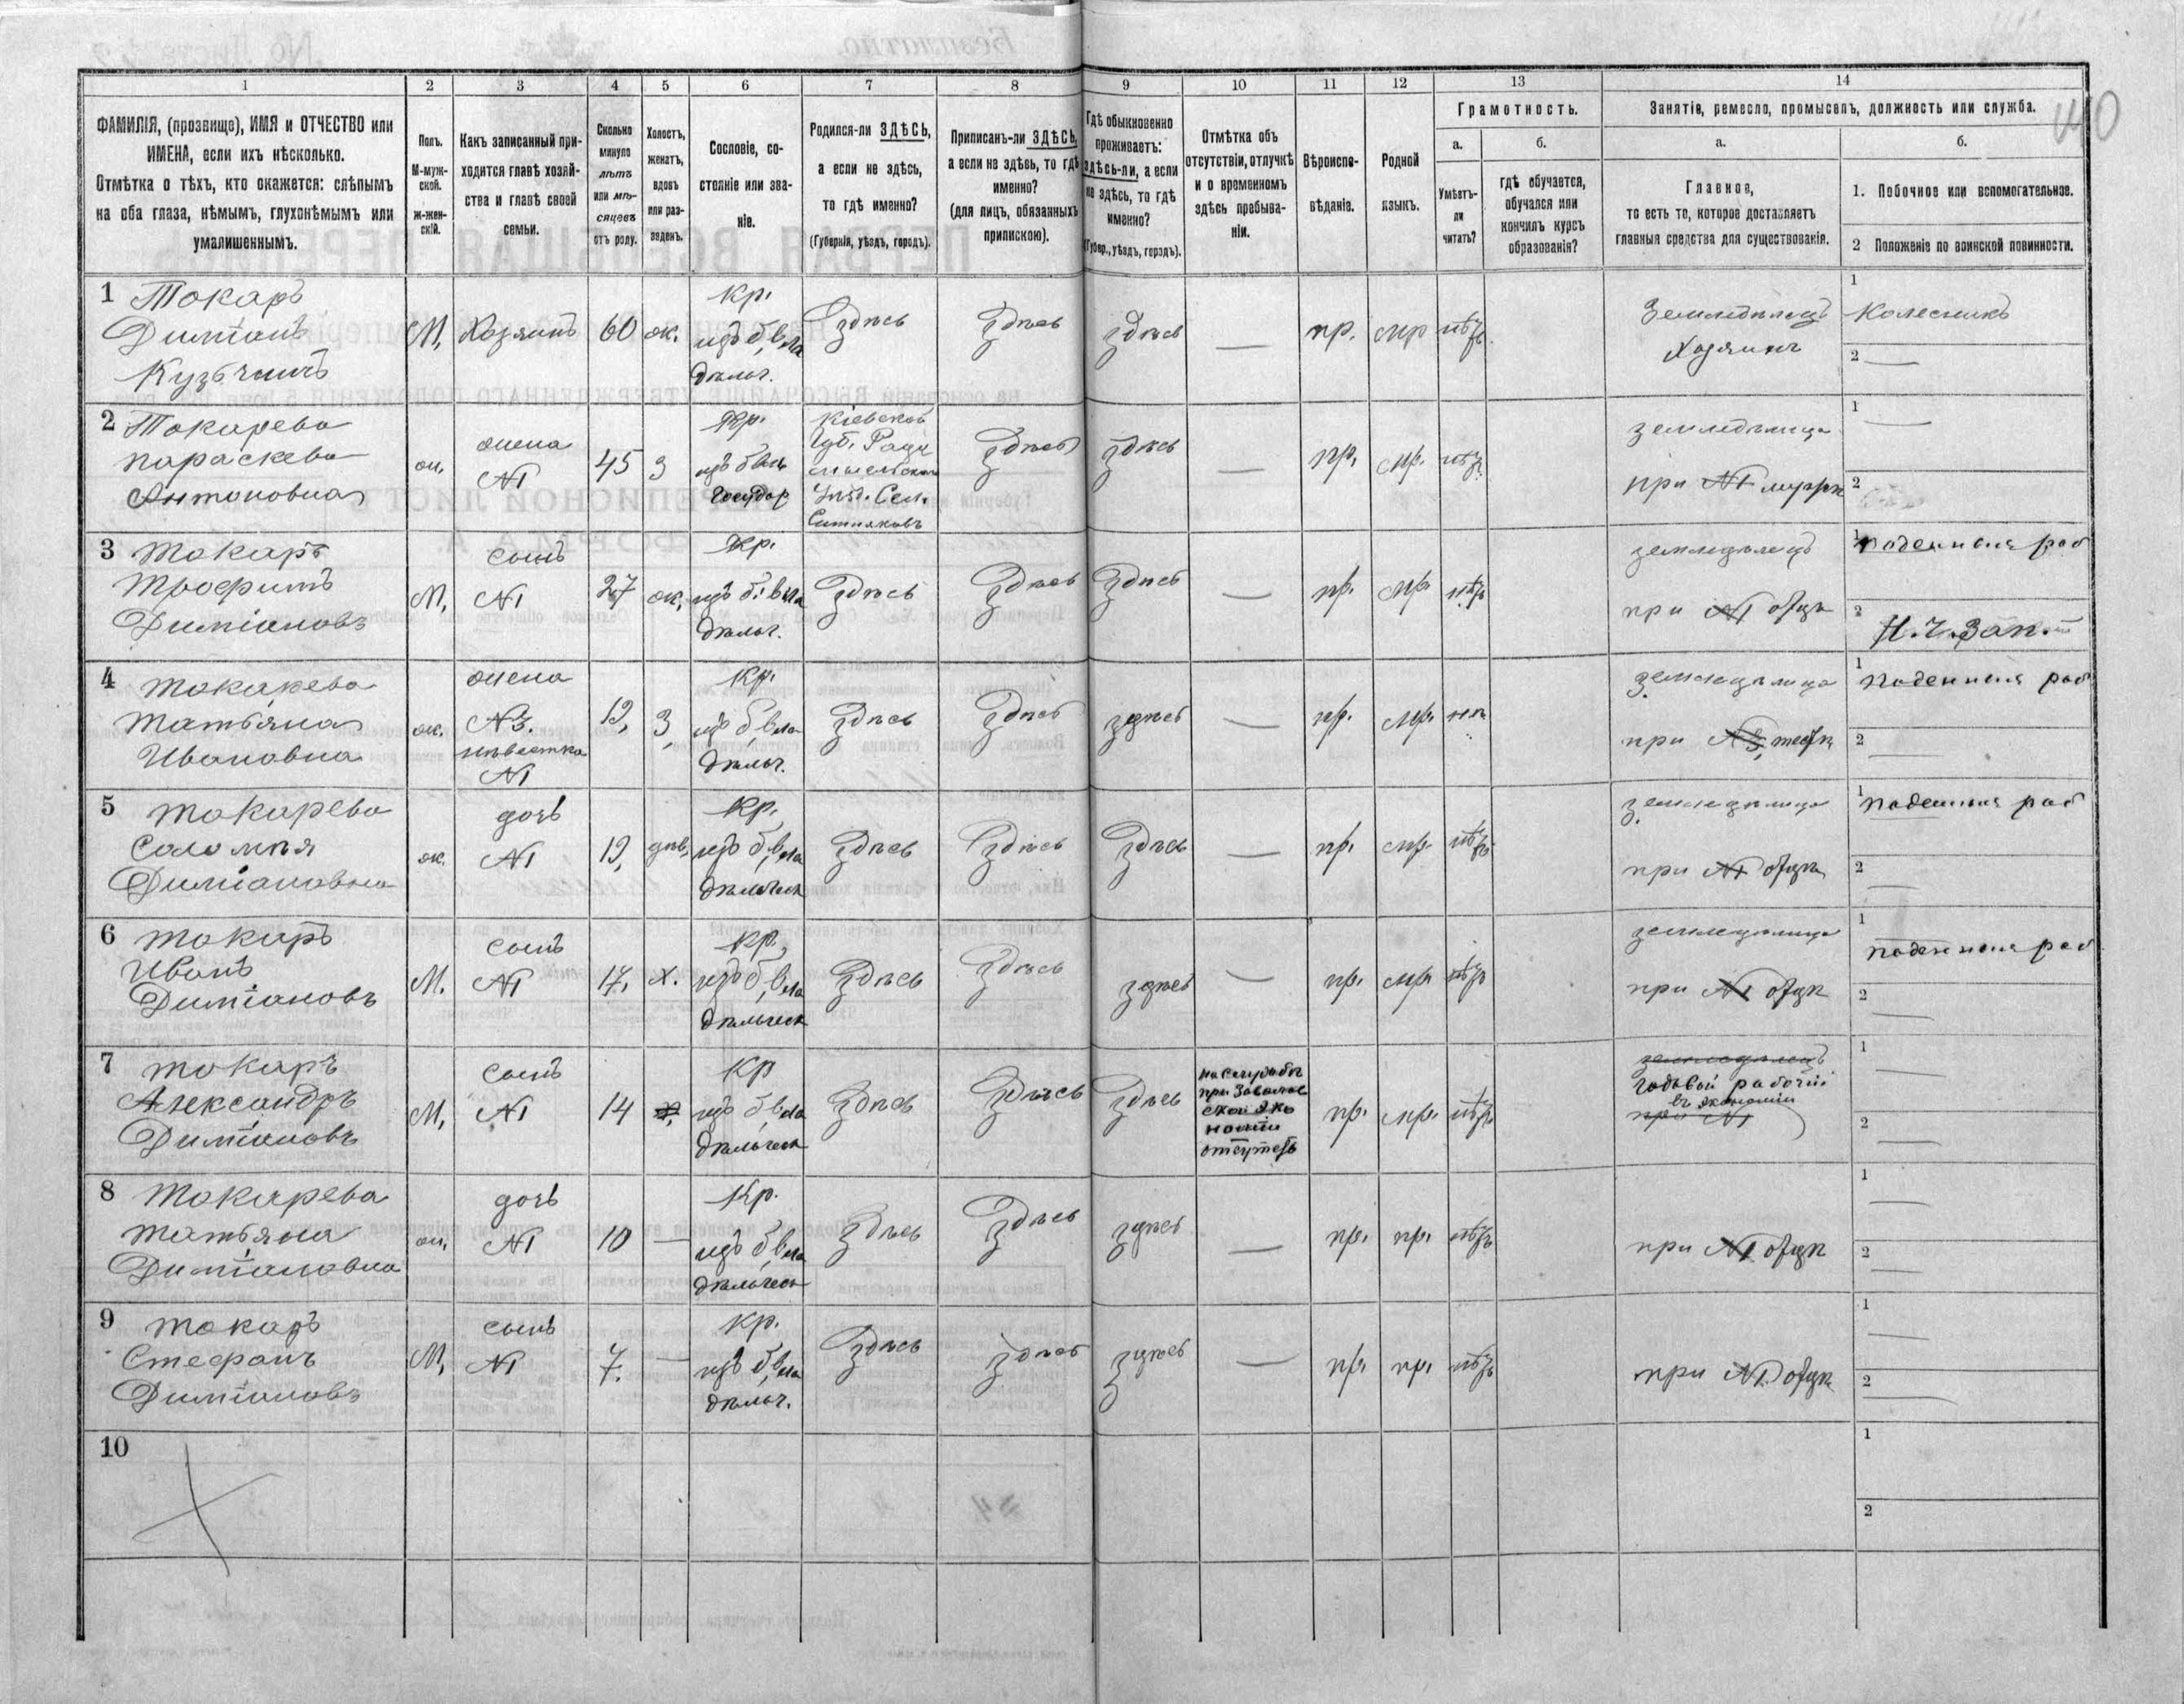 1
2
3
4
5
6
7
8
9
10
11
12
13
14
ФАМИЛІЯ, (прозвище), ИМЯ и ОТЧЕСТВО или
ИМЕНА, если ихъ нѣсколько.
Отмѣтка о тѣхъ, кто окажется: слѣпымъ
на оба глаза, нѣмымъ, глухонѣмымъ или
умалишеннымъ.
Полъ.
М-муж-
ской.
ж-жен-
скій.
Какъ записанный при-
ходится главѣ хозяй-
ства и главѣ своей
семьи.
Сколько
минуло
лѣтъ
или мѣ-
сяцевъ
отъ роду.
Холостъ,
женатъ,
вдовъ
или раз-
веденъ.
Сословіе, со-
стояніе или зва-
ніе.
Родился-ли ЗДѢСЬ,
а если не здѣсь,
то гдѣ именно?
(Губернія, уѣздъ, городъ).
Приписанъ-ли ЗДѢСЬ,
а если не здѣсь, то гдѣ
именно?
(для лицъ, обязанныхъ
припискою).
Гдѣ обыкновенно
проживаетъ:
здѣсь-ли, а если
не здѣсь, то гдѣ
именно?
(Губер., уѣздъ, городъ).
Отмѣтка объ
отсутствіи, отлучкѣ
и о временномъ
здѣсь пребыва-
ніи.
Вѣроиспо-
вѣданіе.
Родной
языкъ.
Грамотность.
а.
Умѣетъ-
ли
читать?
б.
гдѣ обучается,
обучался или
кончилъ курсъ
образованія?
Занятіе, ремесло, промыселъ, должность или служба.
а.
Главное,
то есть то, которое доставляетъ
главныя средства для существованія.
б.
1. Побочное или вспомогательное.
2 Положеніе по воинской повинности.
1 Токаръ
Диміанъ
Кузьмичъ
М, Хозяинъ 60 ж.
Кр.
изъ б, вла
дѣльч.
Здѣсь Здѣсь здѣсь — пр. мр нѣтъ
Земледѣлецъ
Хозяинъ
1 Колесникъ
2 —
2 Токарева
Параскева
Антоновна
ж,
жена
№1
45 З
Кр.
изъ бвш
Государ
Кіевской
Губ. Радо
мысльскаго
Уѣз. Сел.
Ситняковъ
Здѣсь здѣсь — пр, мр. нѣтъ
земледѣлица
при №1 мужѣ
1 —
2
3 Токаръ
Трофимъ
Диміановъ
М,
сынъ
№1
27 ж,
Кр.
изъ б. вла
дѣльч.
Здѣсь Здѣсь Здѣсь — пр. мр. нѣтъ
земледѣлецъ
при №1 отцѣ
1 поденная раб
2 Н. Ч. Зап.
4 Токарева
Татьяна
Ивановна
ж.
жена
№3.
невѣстка
№1
19, З,
Кр.
изъ б, вла
дѣльч.
Здѣсь Здѣсь здѣсь — пр. мр. нѣ
земледѣлица
при №3, тестѣ
1 Поденная раб
2 —
5 Токарева
Саломія
Диміановна
ж.
дочь
№1
19, дѣв,
Кр.
изъ б, вла
дѣльческ
Здѣсь Здѣсь Здѣсь — пр. мр. нѣтъ
земледѣлица
при №1 отцѣ
1 поденная раб
2 —
6 Токаръ
Иванъ
Диміановъ
М.
сынъ
№1
17, х.
Кр,
изъ б, вла
дѣльческ
Здѣсь Здѣсь здѣсь — пр. мр. нѣтъ
земледѣлица
при №1 отцѣ
1 поденная раб
2 —
7 Токаръ
Александръ
Диміановъ
М,
сынъ
№1
14 х,
Кр
изъ б, вла
дѣльческ
Здѣсь Здѣсь Здѣсь
на служдбѣ
при Завалов
ской эко
номіи
отсутств
пр. мр. нѣтъ
земледѣлецъ
Годовой рабочій
въ экономіи
при №1
1 —
2 —
8 Токарева
Татьяна
Диміановна
ж,
дочь
№1
10 —
Кр.
изъ б, вла
дѣльческ
Здѣсь Здѣсь здѣсь — пр. пр. нѣтъ
при №1 отцѣ
1 —
2 —
9 Токаръ
Стефанъ
Диміановъ
М,
сынъ
№1
7. —
Кр.
изъ б, вла
дѣльч.
Здѣсь здѣсь здѣсь — пр. пр. нѣтъ
при №1 отцѣ
1 —
2 —
10
1
2